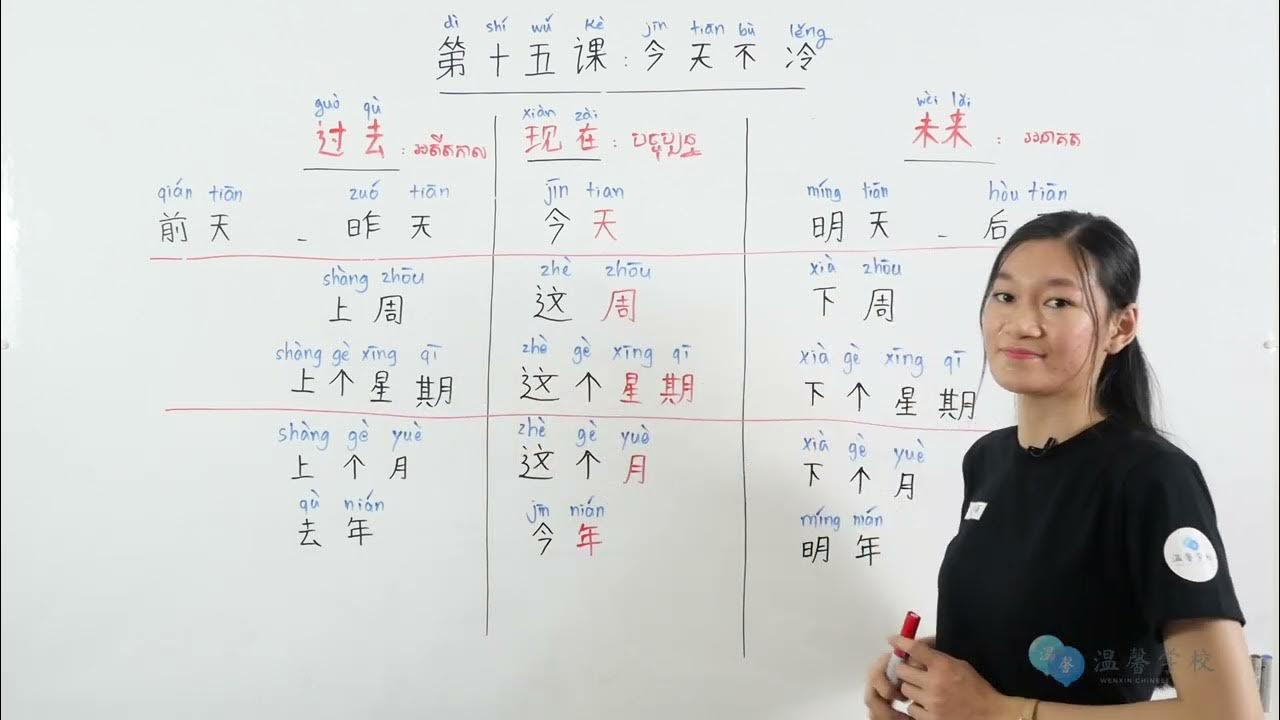 dì shí wǔ kè jīn tiān bù lěng
第十五课:今天不冷
guò qù xiàn zài wèi lái
过去:អតីតកាល 现在:បច្ចុប្បន្ន 未来:អនាគត
qián tiān zuó tiān jīn tian míng tiān hòu tiān
前天 - 昨天 今天 明天 - 后
shàng zhōu zhè zhōu xià zhōu
上周 这周 下周
shàng gè xīng qī zhè gè xīng qī xià gè xīng qī
上个星期 这个星期 下个星期
shàng gè yuè zhè gè yuè xià gè yuè
上个月 这个月 下个月
qù nián jīn nián míng nián
去年 今年 明年
温馨学校
温馨 温馨学校
WENXIN CHINESE